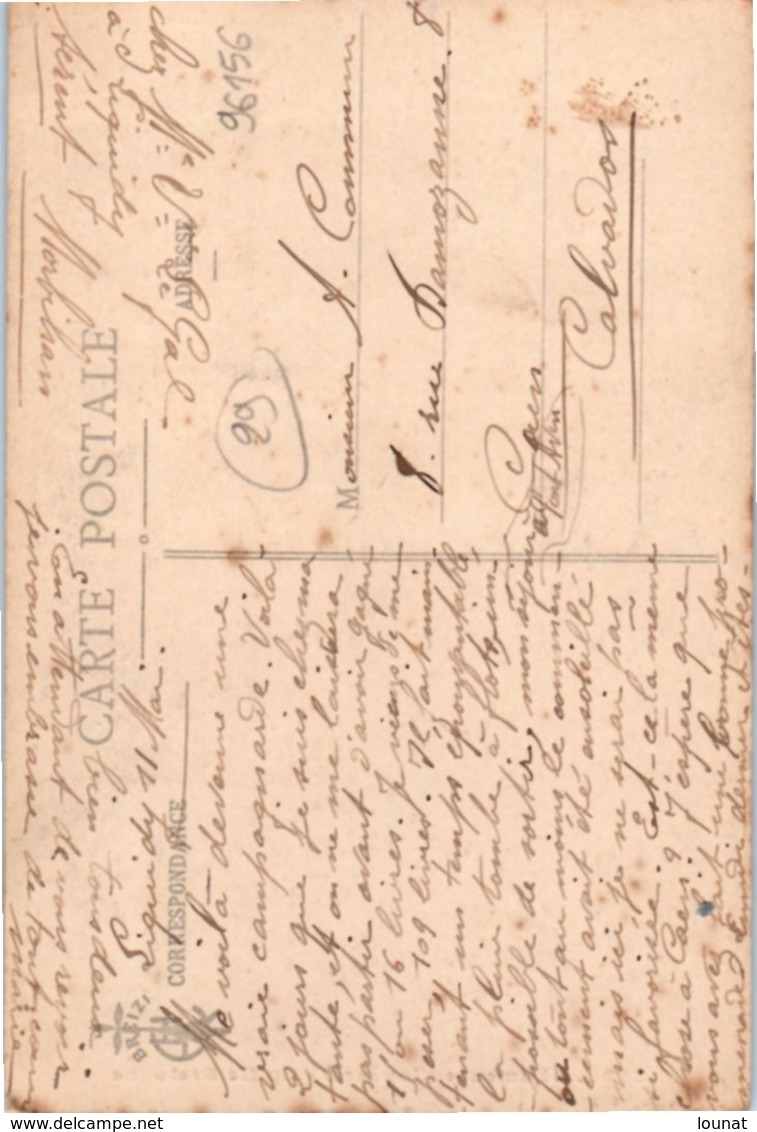 CARTE POSTALE
CORRESPONDANCE
ADRESSE
BREIZ
Liguidy 11 Mai.
Me voilà devenue une
vraie campagnarde. Voilà
2 jours que je suis chez ma
tante, et on ne me laissera
pas partir avant d'avoir gagné
15 ou 16 livres. Je viens de me
peser, 109 livres. Il fait main
tenant un temps épouvantable,
la pluie tombe à flots, im
possible de sortir, mon séjour
ou tout au moins le commen
cement avait été ensoleillé
mais ici je ne serai pas
si favorisée. Est-ce la même
chose à Caen? J'espère que
vous avez fait une bonne pro-
menade Lundi dernier et êtes
bien tous deux
En attendant de vous revoir
je vous embrasse de tout cœur
Marie
chez Me Le Gal
à Liguidy
Morbihan
Monsieur A. Commun
8. rue Damozanne. 8
Caen
Calvados
29
96156
lounat